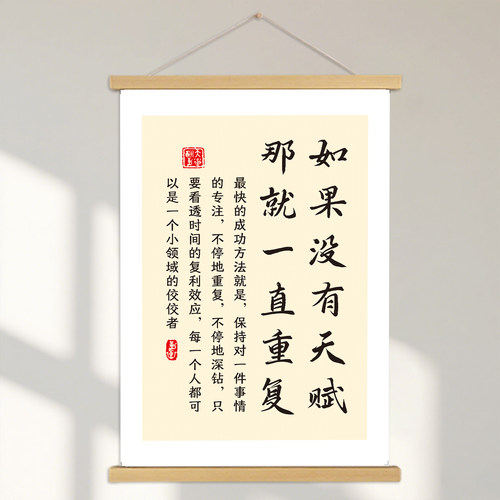 如果没有天赋
那就一直重复
最快的成功方法就是，保持对一件事情
的专注，不停地重复，不停地深钻，只
要看透时间的复利效应，每一个人都可
以是一个小领域的佼佼者